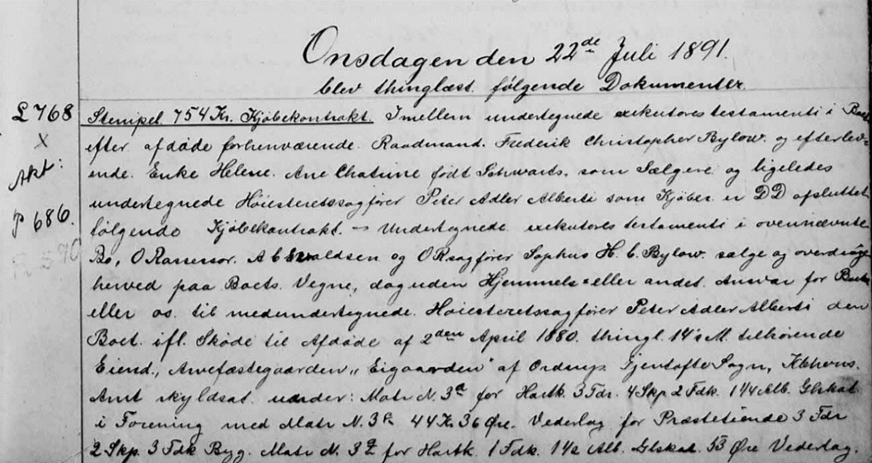 Onsdagen den 22de Juli 1891.
blev thinglæst følgende Dokumenter.
L 768
x
Akt:
P 686.
Stempel 754 Kr. Kjøbekontrakt. Imellem undertegnede exekutores testamenti i Boet
efter afdøde forhenværende Raadmand Frederik Christopher Bylow. og efterlev=
ende Enke Helene Ane Chatrine født Schwartz. som Sælgere og ligeledes
undertegnede Høiesteretssagfører Peter Adler Alberti som Kjøber er DD afsluttet
følgende Kjøbekontrakt. — Undertegnede exekutores testamenti i ovennævnte
Bo, O Rassessor. A C Evaldsen og O Rsagfører Sophus H. C. Bylow. sælge og overdrage
herved paa Boets Vegne, dog uden Hjemmels= eller andet Ansvar for Boet
eller os. til medundertegnede. Høiesteretssagfører Peter Adler Alberti den
Boet ifl. Skøde til Afdøde af 2den April 1880. thingl. 14 s. M. tilhørende
Eiend., Arvefæstegaarden „Eigaarden" af Ordrup, Gjentofte Sogn, Kbhvns.
Amt skyldsat under: Matr N. 3a for Hartk. 3 Tdr. 4 Skp 2 Fdk. 1 1/4 Alb. Glskat
i Forening med Matr N. 44 Kr 36 Øre. Vederlag for Præstetiende 3 Tdr
2 Skp. 3 Fdk Byg. Matr N. for Hartk. 1 Fdk. 1 1/2 Alb. Glskat. 53 Øre Vederlag.